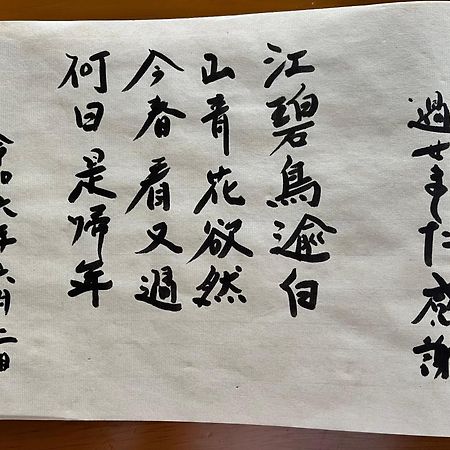 過せました感謝
江碧鳥逾白
山青花欲然
今春看又過
何日是帰年
令和六年六月二日